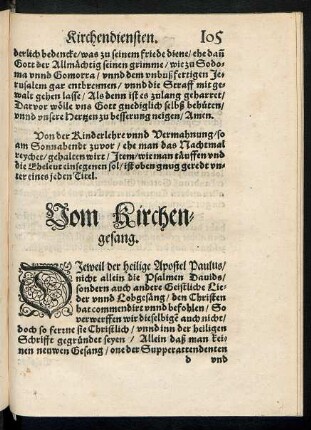 Kirchendiensten. 105
derlich bedencke/was zu seinem friede diene/ehe dañ
Gott der Allmächtig seinen grimme/wie zu Sodo-
ma vnnd Gomorra/vnnd dem vnbußfertigen Je-
rusalem gar entbrennen/vnnd die Straff mit ge-
walt gehen lasse/Als denn ist es zulang geharret/
Darvor wölle vns Gott gnediglich selbst behüten/
vnnd vnsere Hertzen zu besserung neigen/Amen.
Von der Kinderlehre vnnd Vermahnung/so
am Sonnabendt zuvor/ehe man das Nachtmal
reychet/gehalten wirt/Item/wie man täuffen vnd
die Eheleut einsegenen sol/ist oben gnug geredt vn-
ter eines jeden Titel.
Vom Kirchen-
gesang.
DJeweil der heilige Apostel Paulus/
nicht allein die Psalmen Dauids/
sondern auch andere Geistliche Lie-
der vnnd Lobgesäng/den Christen
hat commendirt vnnd befohlen/So
verwerffen wir dieselbige auch nicht/
doch so ferrne sie Christlich/vnnd inn der heiligen
Schrifft gegründet seyen/Allein daß man kei-
nen neuwen Gesang/one der Supperattendenten
d vnd